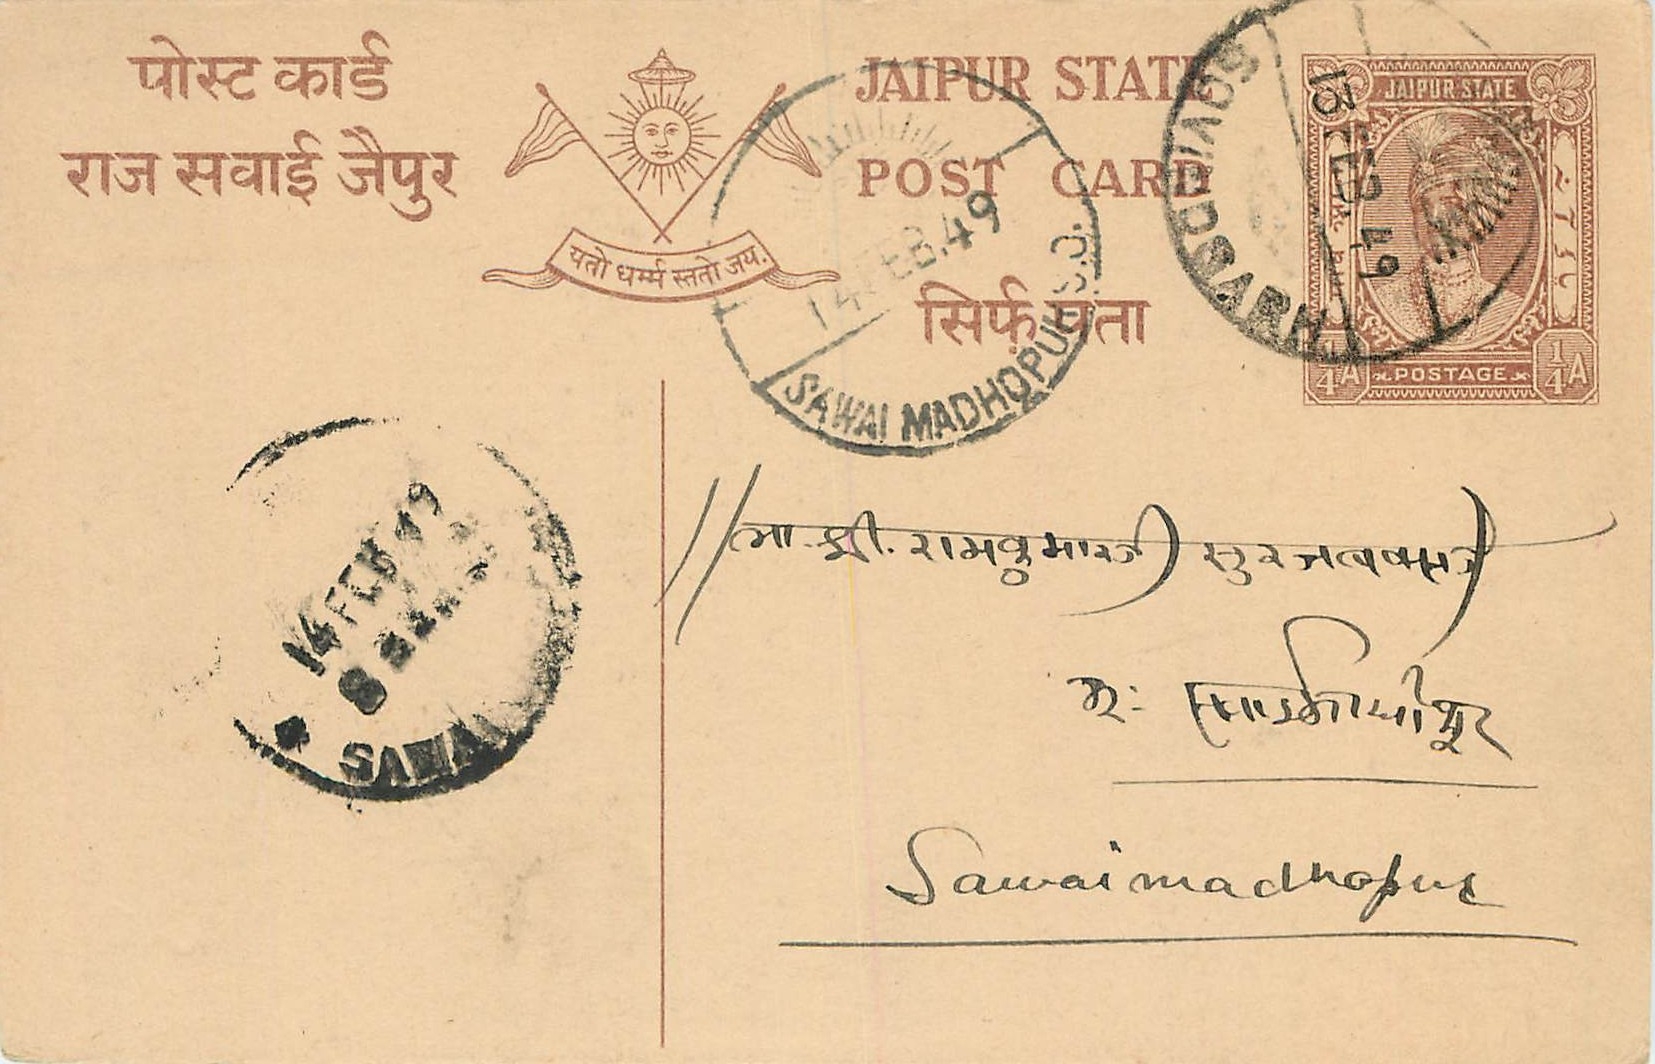 पोस्ट कार्ड
राज सवाई जैपुर
यतो धर्म्म स्ततो जय.
JAIPUR STATE
POST CARD
सिर्फ़ पता
JAIPUR STATE
POSTAGE
1/4 A
1/4 A
13 FEB. 49
14 FEB. 49
SAWAI MADHOPUR S.O.
14 FEB 49
SAWAI
श्री. रामकुमारजी
Sawaimadhopur